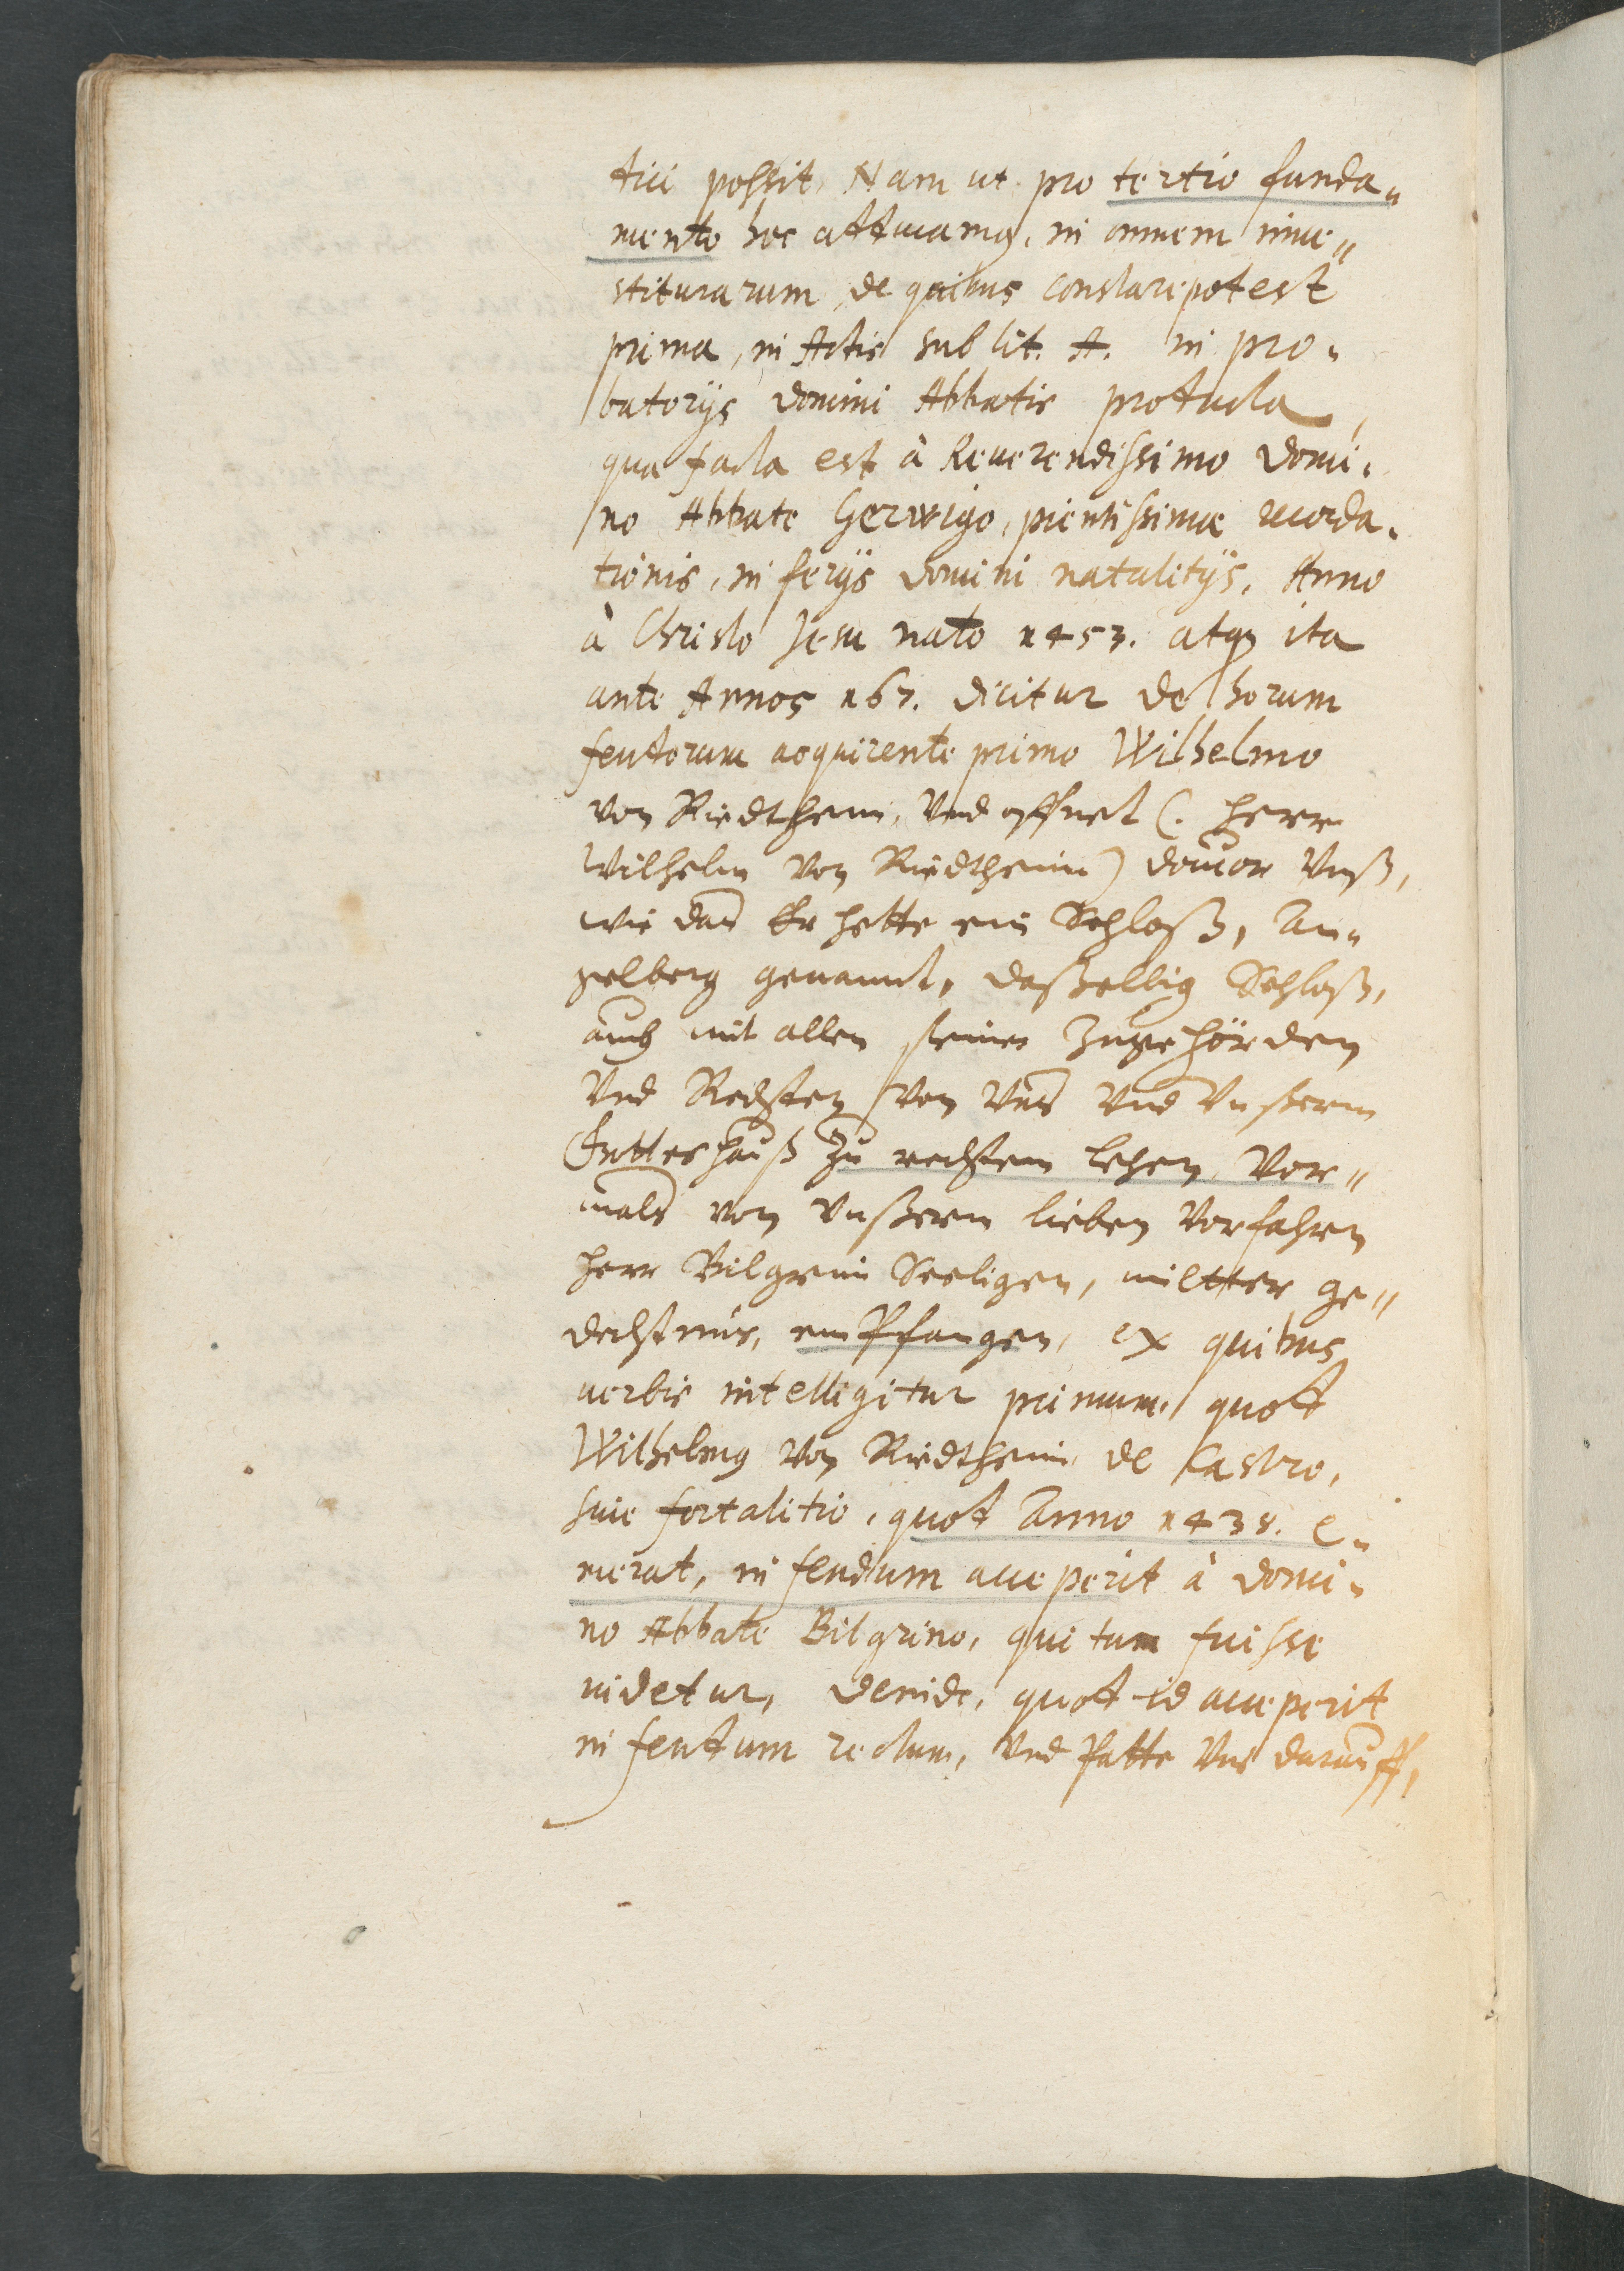 dici possit, Nam ut pro tertio funda„
mento hoc adducamus, in omnem inue„
stiturarum, de quibus constare potest
prima, in Actis sub lit. A. in pro„
batorijs domini Abbatis producta,
qua facta est à Reuerendissimo domi„
no Abbate Gerwigo, pientissimæ recorda„
tionis, in ferijs domini natalitijs, Anno
à Christo Jesu nato 1453. atq₃ ita
ante Annos 167. dicitur de horum
feudorum acquirente primo Wilhelmo
von Riedtheim, Vnd offnet (. Herr
Wilhelm von Riedtheim) dauor Vnß,
wie das Er hette ein Schloß, An„
gelberg genannt, daßselbig Schloß,
auch mit allen seinen Zugehörden
Vnd Rechten von Vns Vnd Vnßerm
Gotteshauß zu rechtem lehen, Vor„
mals von Vnßerm lieben Vorfahren
Herr Bilgrim Seeligen, miltter ge„
dechtnus, empfangen, ex quibus
uerbis intelligitur primum, quod
Wilhelmus von Riedtheim de Castro,
siue fortalitio, quod Anno 1438. e„
merat, in feudum acceperit à domi„
no Abbate Bilgrino, qui tum fuisse
uidetur, deinde, quod id acceperit
in feudum rectum, Vnd hatte Vns darauff,